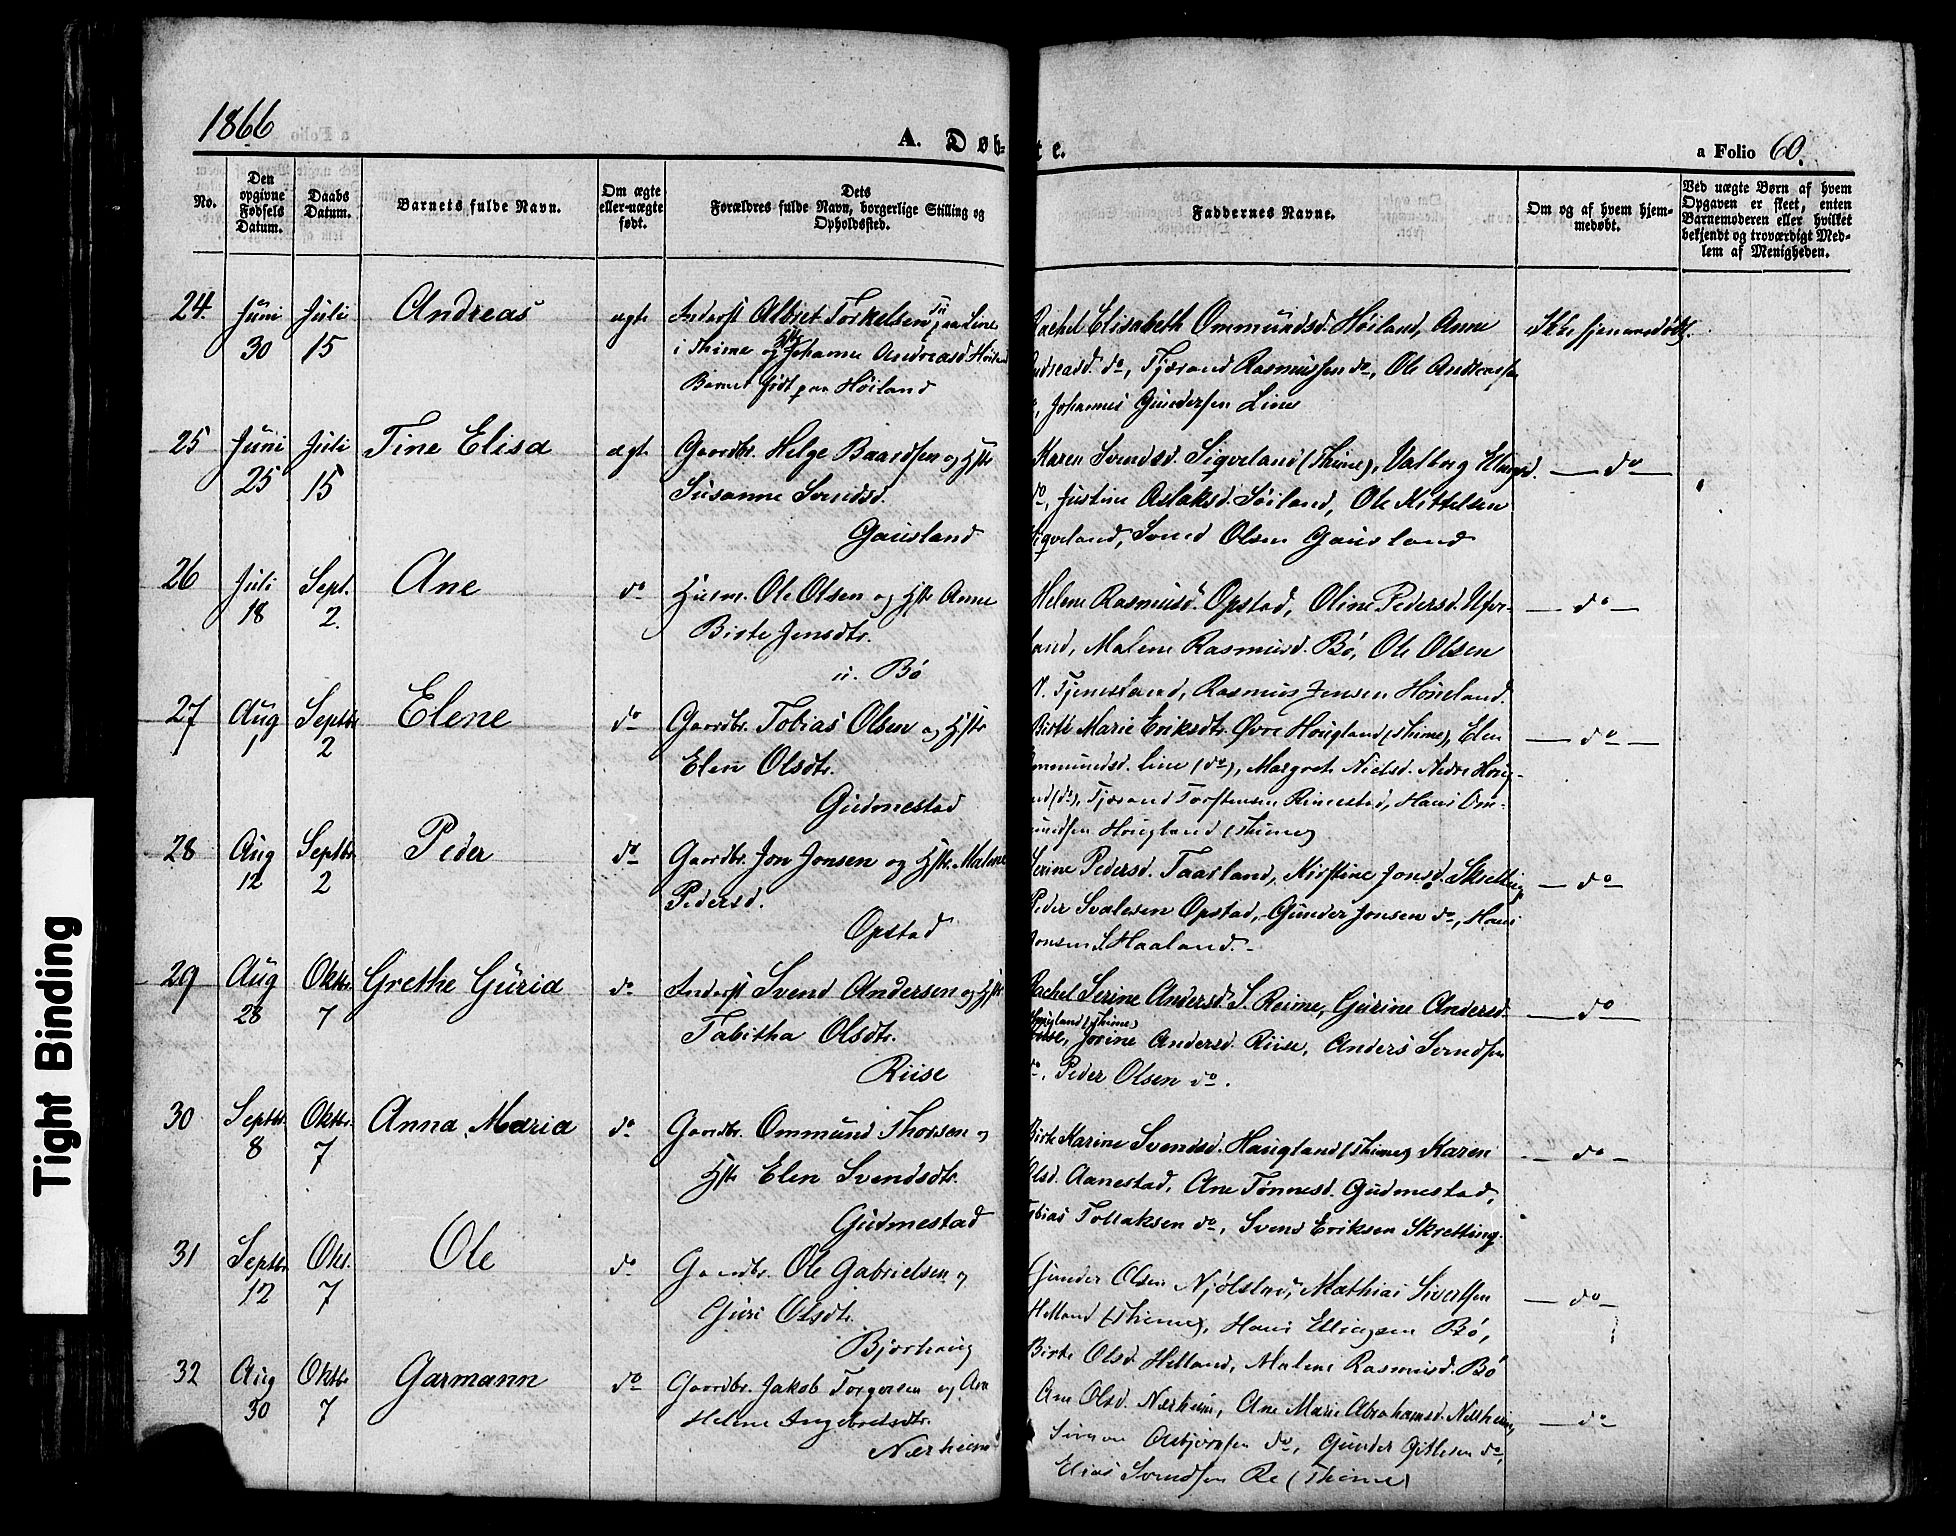 1866
A. Døb-
te.
a Folio 60.
No.
Den opgivne Fødsels Datum.
Daabs Datum.
Barnets fulde Navn.
Om ægte eller uægte født.
Dets
Forældres fulde Navn, borgerlige Stilling og
Opholdssted.
Faddernes Navne.
Om og af hvem hjem-
medøbt.
Ved uægte Børn af hvem
Opgaven er skeet, enten
Barnemoderen eller hvilket
bekjendt og troværdigt Med-
lem af Menigheden.
24. Juni 30 Juli 15 Andreas ægte Inderst Albret Torkelsen paa Line
i Thime og Hst. Johanne Andreasd. Høiland
Barnet født paa Høiland
Rachel Elisabeth Ommundsd. Høiland, Anne
Andreasd. do, Tjerand Rasmussen do, Ole Andreassen
do, Johannes Gundersen Line
Ikke hjemmedøbt.
25 Juni 25 Juli 15 Tine Elisa ægt. Gaardbr. Helge Baardsen og Hstr
Susanne Svendsd.
Gausland
Karen Svendsd. Sigveland (Thime), Valborg
do, Justine Aslaksd. Søiland, Ole Kittelsen
Sigveland, Svend Olsen Gausland
do
26 Juli 18 Sept. 2. Ane do Husm. Ole Olsen og Hstr Anne
Birte Jensdtr.
u. Bø
Helene Rasmusd. Opstad, Oline Pedersd. Ufor-
land, Malene Rasmusd. Bø, Ole Olsen
N. Tjensland, Rasmus Jensen Høieland.
do
27 Aug 1 Septbr 2 Elene do Gaardbr. Tobias Olsen og Hstr
Elen Olsdtr.
Gudmestad
Birte Marie Eriksdtr. Øvre Hougland (Thime), Elen
Ommundsd. Line (do), Margrete Nielsd. Nedre Houg-
land (do), Tjerand Torstensen Rimestad, Hans Om-
mundsen Hougland (Thime)
do
28 Aug 12 Septbr 2 Peder do Gaardbr. Jon Jonsen og Hstr. Malene
Pedersd.
Opstad
Serine Pedersd. Taarland, Kirstine Jonsd. Skretting
Peder Svalesen Opstad, Gunder Jonsen do, Hans
Jonsen S. Haaland.
do
29 Aug 28 Oktbr 7 Grethe Guria do Inderst Svend Andersen og Hstr
Tabitha Olsdtr.
Riise
Rachel Serine Andersd. S. Reime, Gurine Andersd.
Hougland (Thime)
Jorine Andersd. Riise, Anders Svendsen
do, Peder Olsen do.
do
30 Septbr. 8 Oktbr. 7 Anna Maria do Gaardbr. Ommund Thorsen og
Hstr Elen Svendsdtr.
Gudmestad
Birte Karine Svendsd. Haugland (Thime) Karen
Olsd. Aanestad, Ane Tønnesd. Gudmestad,
Tobias Tollaksen do, Svend Eriksen Skretting.
do
31 Septbr. 12 Okt. 7 Ole do Gaardbr. Ole Gabrielsen og
Guri Olsdtr.
Bjorhaug
Gunder Olsen Njølstad, Mathias Sivertsen
Helland (Thime), Hans Ellingsen Bø,
Birte Olsd. Helland, Malene Rasmusd. Bø
do
32 Aug 30 Oktbr 7 Garmann do Gaardbr. Jakob Torgersen og Ane
Helene Ingebretsdtr.
Nærheim
Ane Olsd. Nærheim, Ane Marie Abrahamsd. Nærheim,
Simon Asbjørnsen do, Gunder Gitlesen do,
Elias Svendsen Re (Thime)
do
Tight Binding